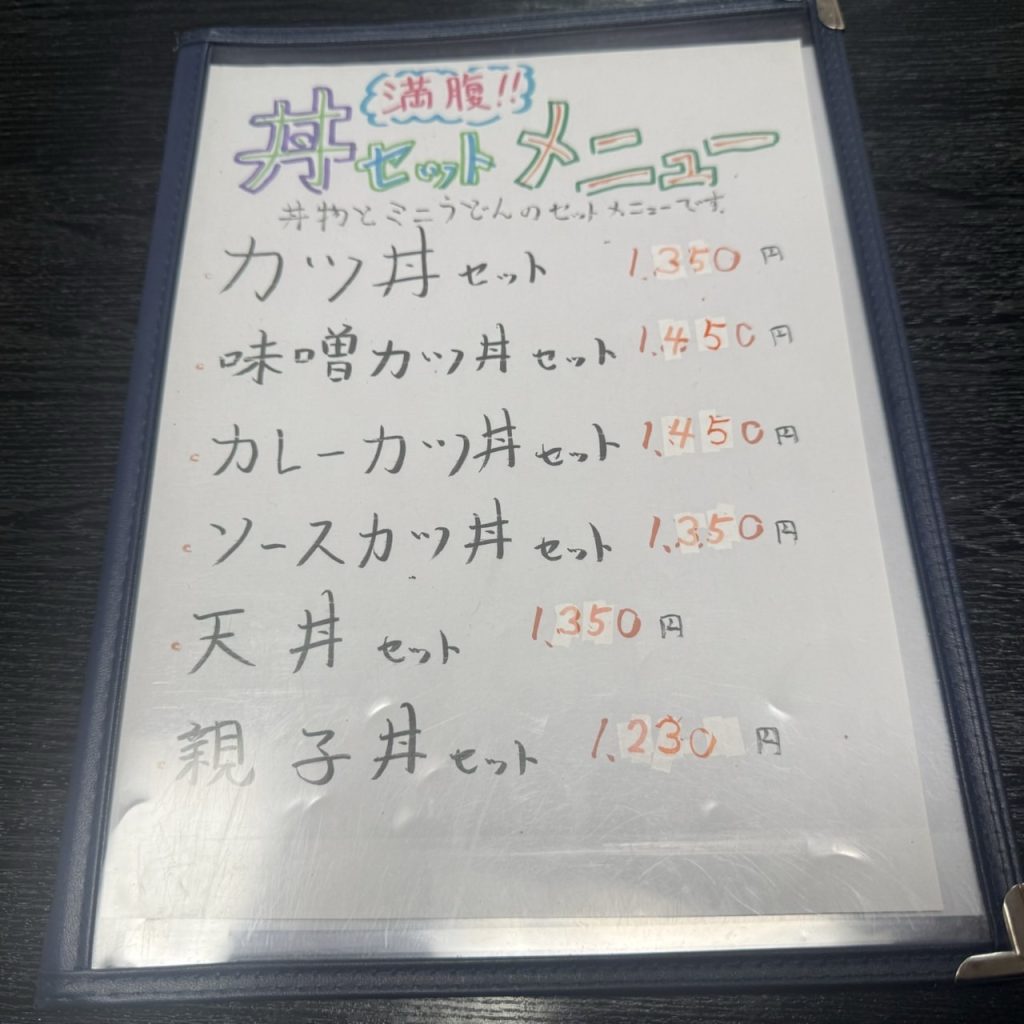 満腹!!
丼セットメニュー
丼物とミニうどんのセットメニューです。
カツ丼セット 1,350円
味噌カツ丼セット 1,450円
カレーカツ丼セット 1,450円
ソースカツ丼セット 1,350円
天丼セット 1,350円
親子丼セット 1,230円